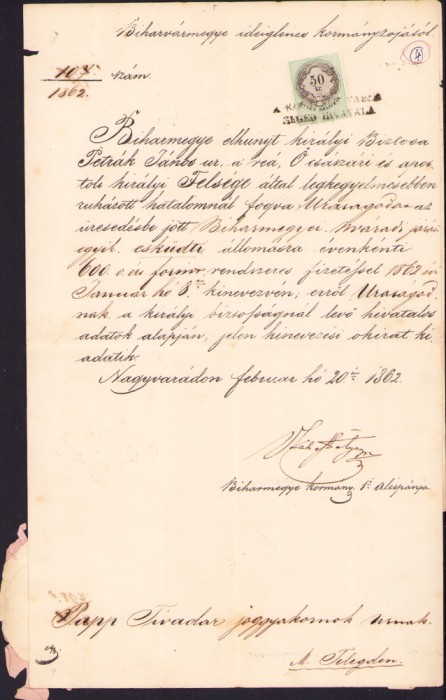 Biharvármegye ideiglenes kormányzojától.
107 szám.
1862.
4
50
Biharmegye elhunyt királyi Biztosa
Petrák János ur, a reá, Ő császári és apos-
toli királyi Felsége által legkegyelmesebben
ruházott hatalomnál fogva Uraságodat az
üresedésbe jött Biharmegyei Nváradi járás
esküdti állomásra évenkénti
600 o. ért. forint rendszeres fizetéssel 1862 évi
Januar hó 8. kinevezvén; erről Uraságod-
nak a királyi biztosságnál levő hivatalos
adatok alapján, jelen kinevezési okirat ki-
adatik.
Nagyváradon februar hó 20án 1862.
Biharmegye kormány. 1ő Alispánja.
Papp Tivadar joggyakornok urnak.
M. Telegden.